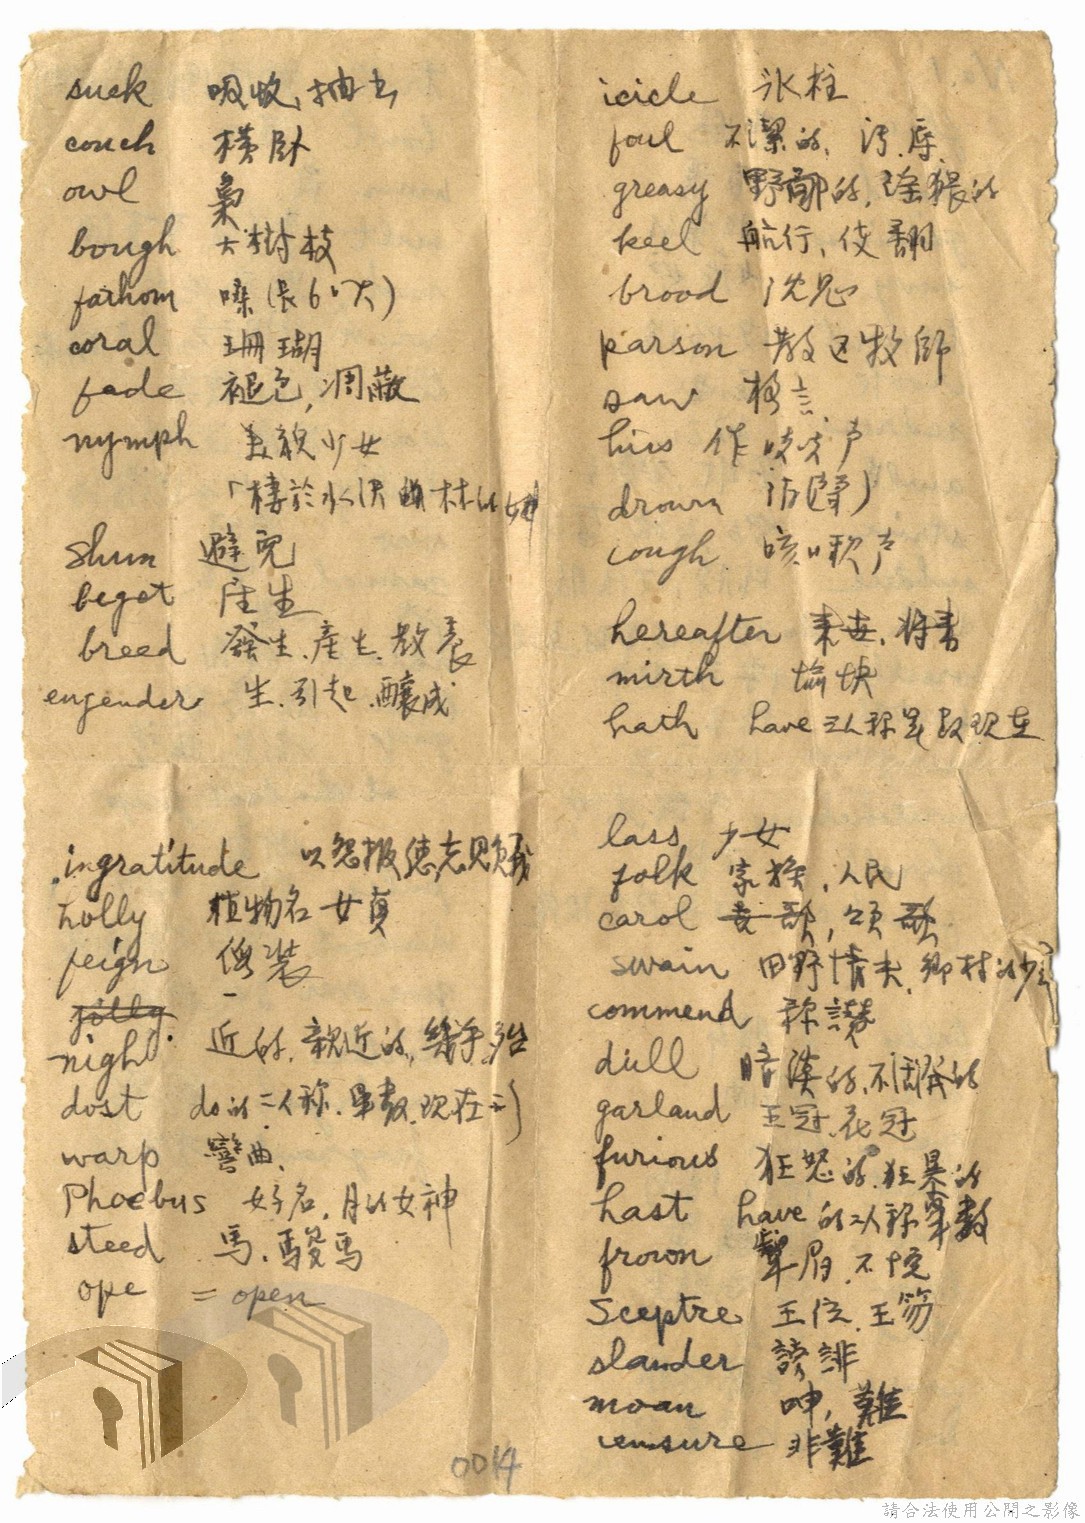 suck 吸收、抽出
couch 橫臥
owl 梟
bough 大樹枝
fathom 噚(長6呎)
coral 珊瑚
fade 褪色,凋蔽
nymph 美貌少女
「棲於水澤 林的女神
shun 避免
beget 產生
breed 發生、產生、教養
engender 生、引起、釀成
ingratitude 以怨報德忘恩負義
holly 植物名 女真
feign 偽裝
jolly
nigh 近的、親近的,幾乎
dost do的二人称、單数、现在
warp 彎曲、
Phoebus 女子名,月的女神
steed 馬、駿馬
ope = open
icicle 氷柱
foul 不潔的、污辱、
greasy 野鄙的,淫猥的
keel 航行、使翻
brood 沈思
parson 教区牧師
saw 格言
hiss 作 声
drown 沾(聲)
cough 咳嗽声
hereafter 来世、将来
mirth 愉快
hath have 三人称單数现在
lass 少女
folk 家族、人民
carol 喜歌,頌歌
swain 田野情夫、鄉村的少
commend 称讚
dull 暗淡的、不活潑的
garland 王冠、花冠
furious 狂怒的、狂暴的
hast have的二人称單数
frown 顰眉、不悅
Sceptre 王位、王笏
slander 謗誹
moan 呻,難
censure 非難
0014
請合法使用公開之影像